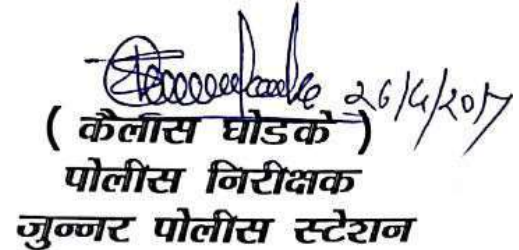 26/4/2017
( कैलास घोडके )
पोलीस निरीक्षक
जुन्नर पोलीस स्टेशन